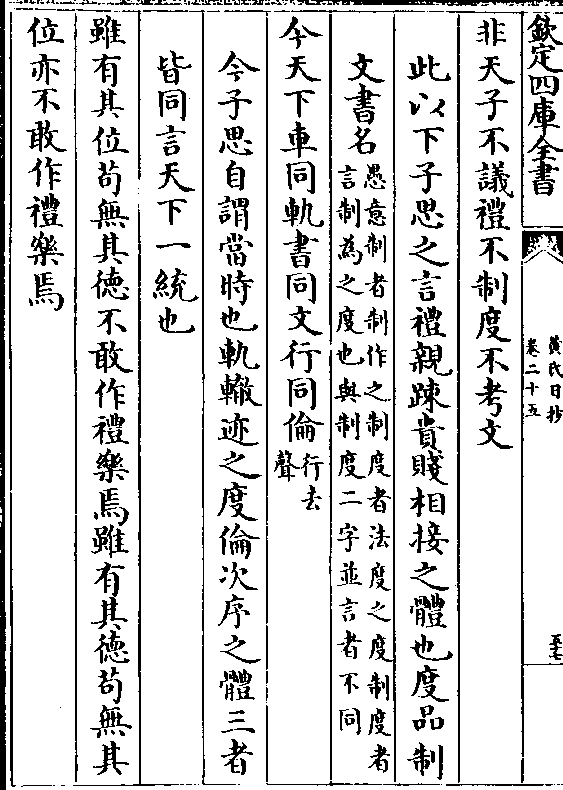 欽定四庫全書
黄氏日抄
卷二十五
非天子不議禮不制度不考文
此以下子思之言禮親踈貴賤相接之體也度品制
文書名
愚意制者制作之制度者法度之度制度者
言制為之度也與制度二字並言者不同
今天下車同軌書同文行同倫
行去
聲
今子思自謂當時也軌轍迹之度倫次序之體三者
皆同言天下一統也
雖有其位苟無其德不敢作禮樂焉雖有其德苟無其
位亦不敢作禮樂焉